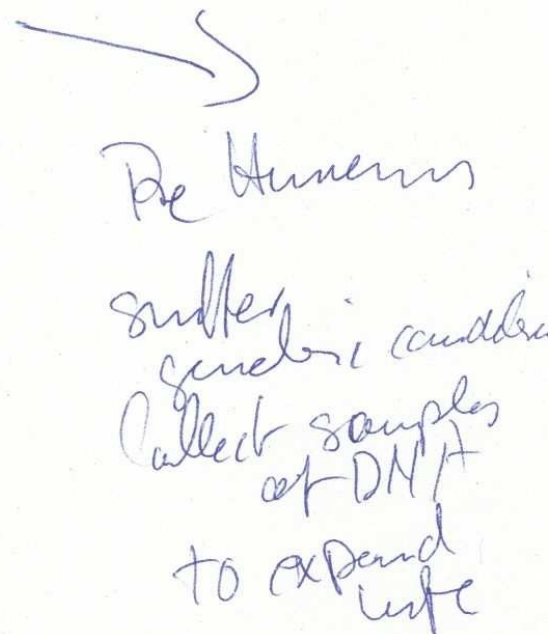 The Humans
suffer
genetic condition
Collect samples
of DNA
to expand
life